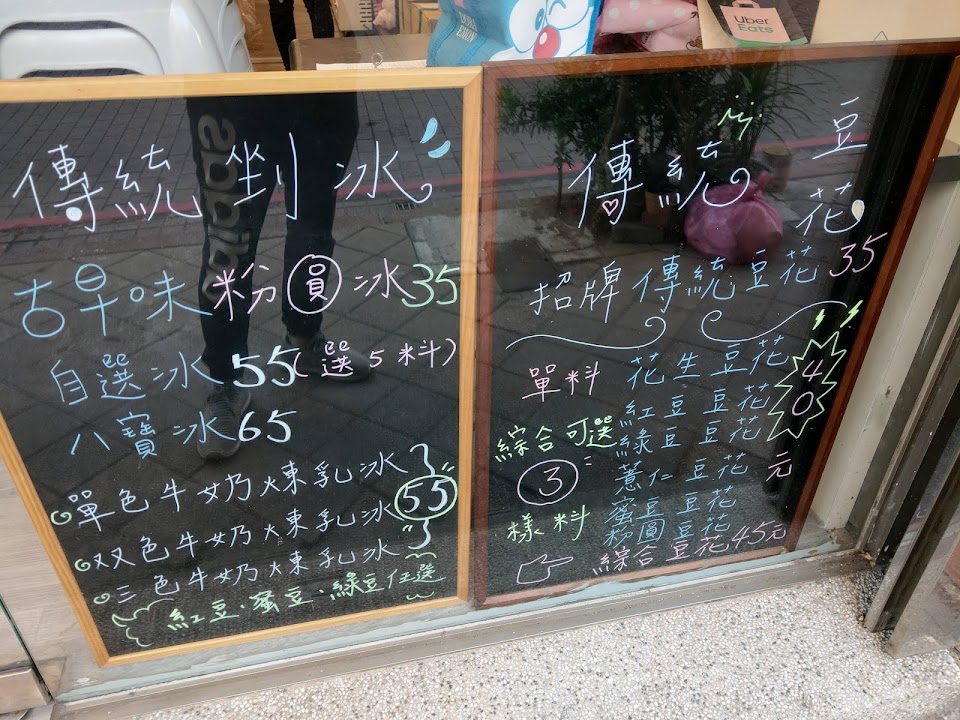 Uber
Eats
傳統剉冰
古早味粉圓冰35
自選冰55(選5料)
八寶冰65
單色牛奶煉乳冰
双色牛奶煉乳冰
55
三色牛奶煉乳冰
紅豆·蜜豆·綠豆任選
傳統豆花
招牌傳統豆花35
單料
花生豆花
紅豆豆花
綠豆豆花
薏仁豆花
蜜豆豆花
粉圓豆花
40元
綜合可選
3
樣料
綜合豆花45元